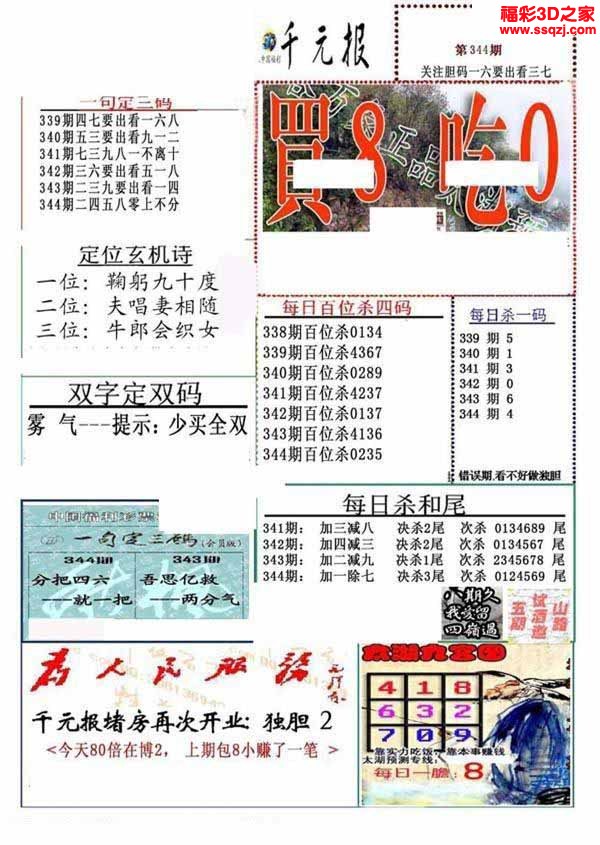 福彩3D之家
www.ssqzj.com
千元报
第344期
关注胆码一六要出看三七
一句定三码
339期四七要出看一六八
340期五三要出看九一二
341期七三九八一不离十
342期三六要出看五一八
343期二三九要出看一四
344期二四五八零上不分
買8吃0
定位玄机诗
一位：鞠躬九十度
二位：夫唱妻相随
三位：牛郎会织女
每日百位杀四码
338期百位杀0134
339期百位杀4367
340期百位杀0289
341期百位杀4237
342期百位杀0137
343期百位杀4136
344期百位杀0235
每日杀一码
339 期 5
340 期 1
341 期 3
342 期 0
343 期 6
344 期 4
错误期，看不好做独胆
双字定双码
雾 气---提示：少买全双
每日杀和尾
341期： 加三减八 决杀2尾 次杀 0134689 尾
342期： 加四减三 决杀2尾 次杀 0134567 尾
343期： 加二减九 决杀1尾 次杀 2345678 尾
344期： 加一除七 决杀3尾 次杀 0124569 尾
中国福利彩票
一句定三码(会员版)
344期
分把四六
——就一把
343期
吾思亿救
——两分气
八期久
我爱留
四嶺過
山路
试酒邀
五期
为人民服务
千元报堵房再次开业：独胆 2
<今天80倍在博2， 上期包8小赚了一笔 >
太湖九宫图
4 1 8
6 3 2
7 0 9
靠实力吃饭，靠本事赚钱
太湖预测专线：
每日一胆：8